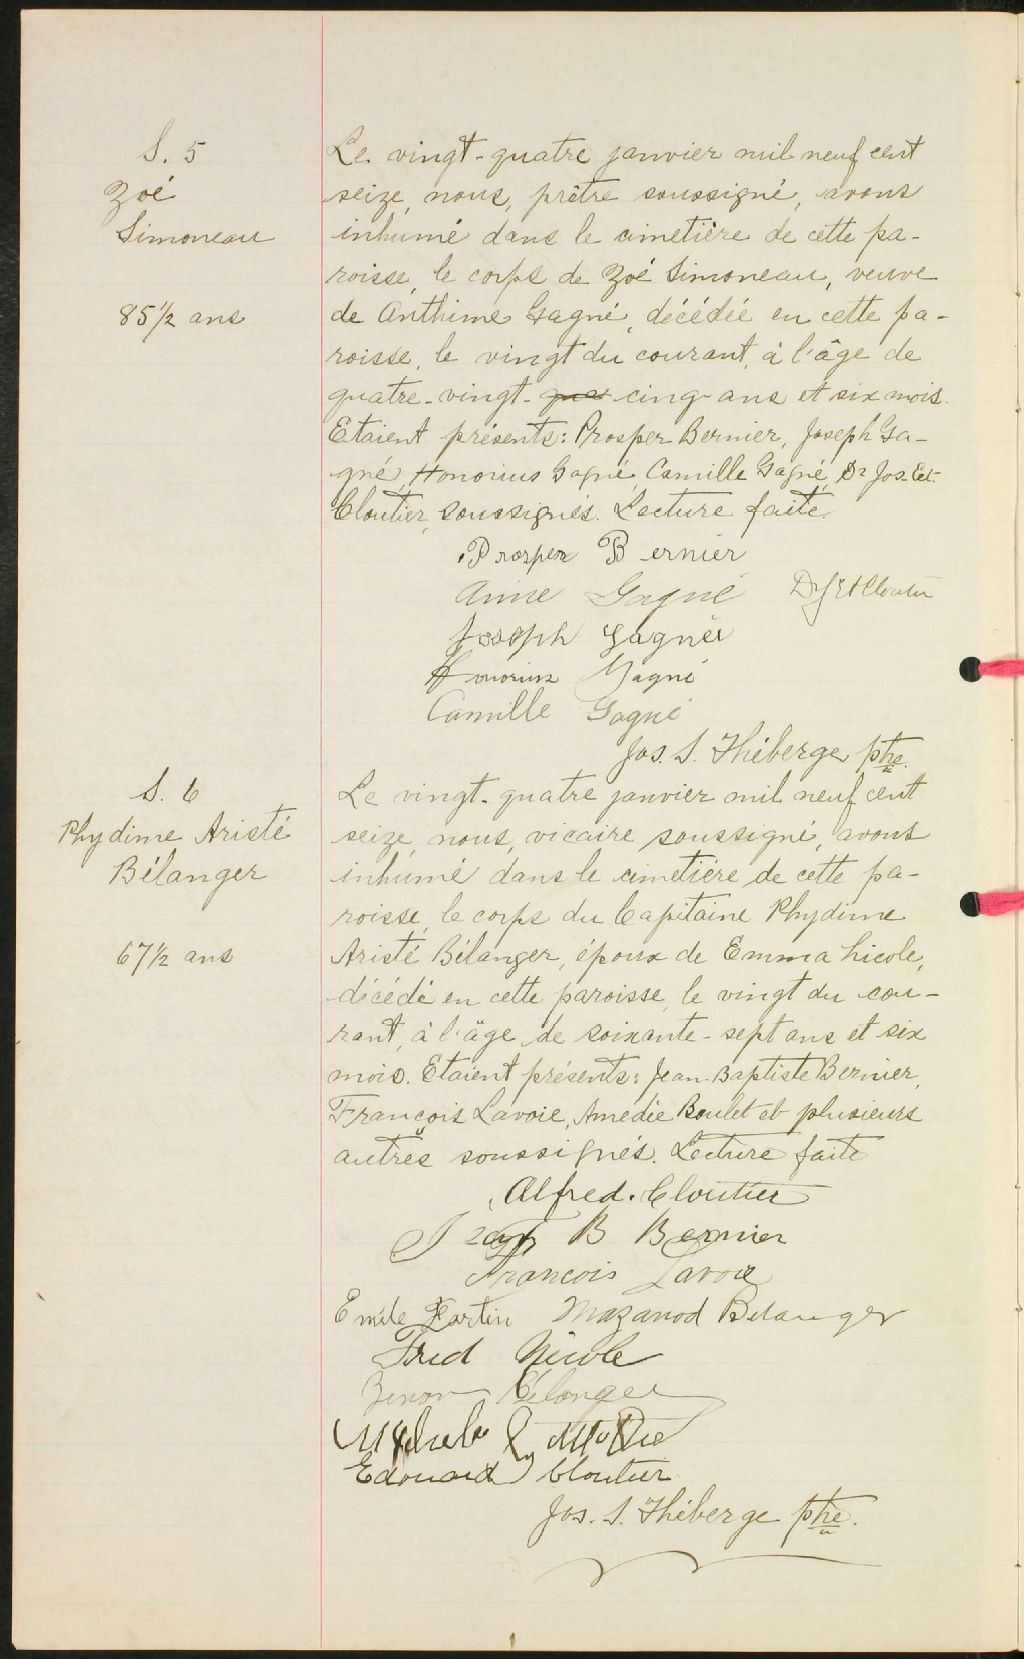 S. 5
Zoé
Simoneau
85 1/2 ans
Le vingt-quatre janvier mil neuf cent
seize, nous, prêtre soussigné, avons
inhumé dans le cimetière de cette pa-
roisse, le corps de Zoé Simoneau, veuve
de Anthime Gagné, décédée en cette pa-
roisse, le vingt du courant, à l'âge de
quatre-vingt-cinq ans et six mois.
Etaient présents: Prosper Bernier, Joseph Ga-
gné, Honorius Gagné, Camille Gagné, Dr Jos. Et.
Cloutier, soussignés. Lecture faite.
Prosper Bernier
Anne Gagné Dr J Et Cloutier
Joseph Gagnér
Honorius Gagné
Camille Gagné
Jos. S. Théberge ptre.
S. 6
Phydime Aristé
Bélanger
67 1/2 ans
Le vingt-quatre janvier mil neuf cent
seize, nous, vicaire soussigné, avons
inhumé dans le cimetière de cette pa-
roisse, le corps du Capitaine Phydime
Aristé Bélanger, époux de Emma Nicole,
décédé en cette paroisse, le vingt du cou-
rant, à l'âge de soixante-sept ans et six
mois. Etaient présents: Jean-Baptiste Bernier,
François Lavoie, Amedie Boulet et plusieurs
autres soussignés. Lecture faite
Alfred. Cloutier
Jean B Bernier
Francois Lavoie
Emile Fortin Mazanod Belanger
Fred Nicole
Zenon Bélanger
Edouard Cloutier
Jos. S. Théberge ptre.